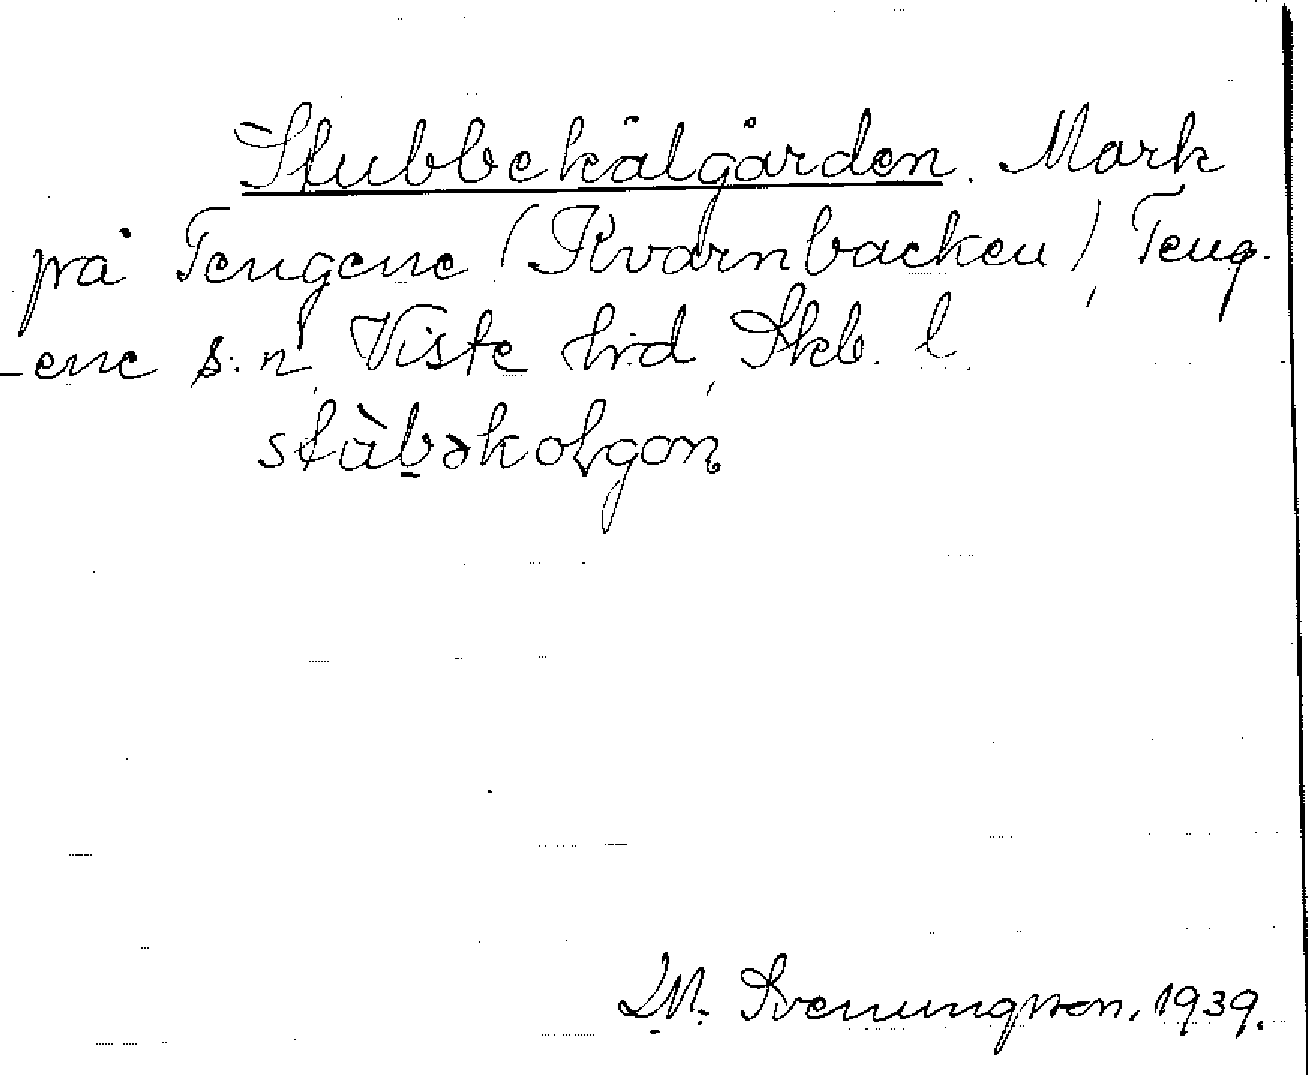 Stubbekålgården. Mark
på Tengene (Kvarnbacken), Teng-
ene s:n, Viste hrd, Skb. l.
stùb̠əkoɫgon̥
M. Svenungsson. 1939.